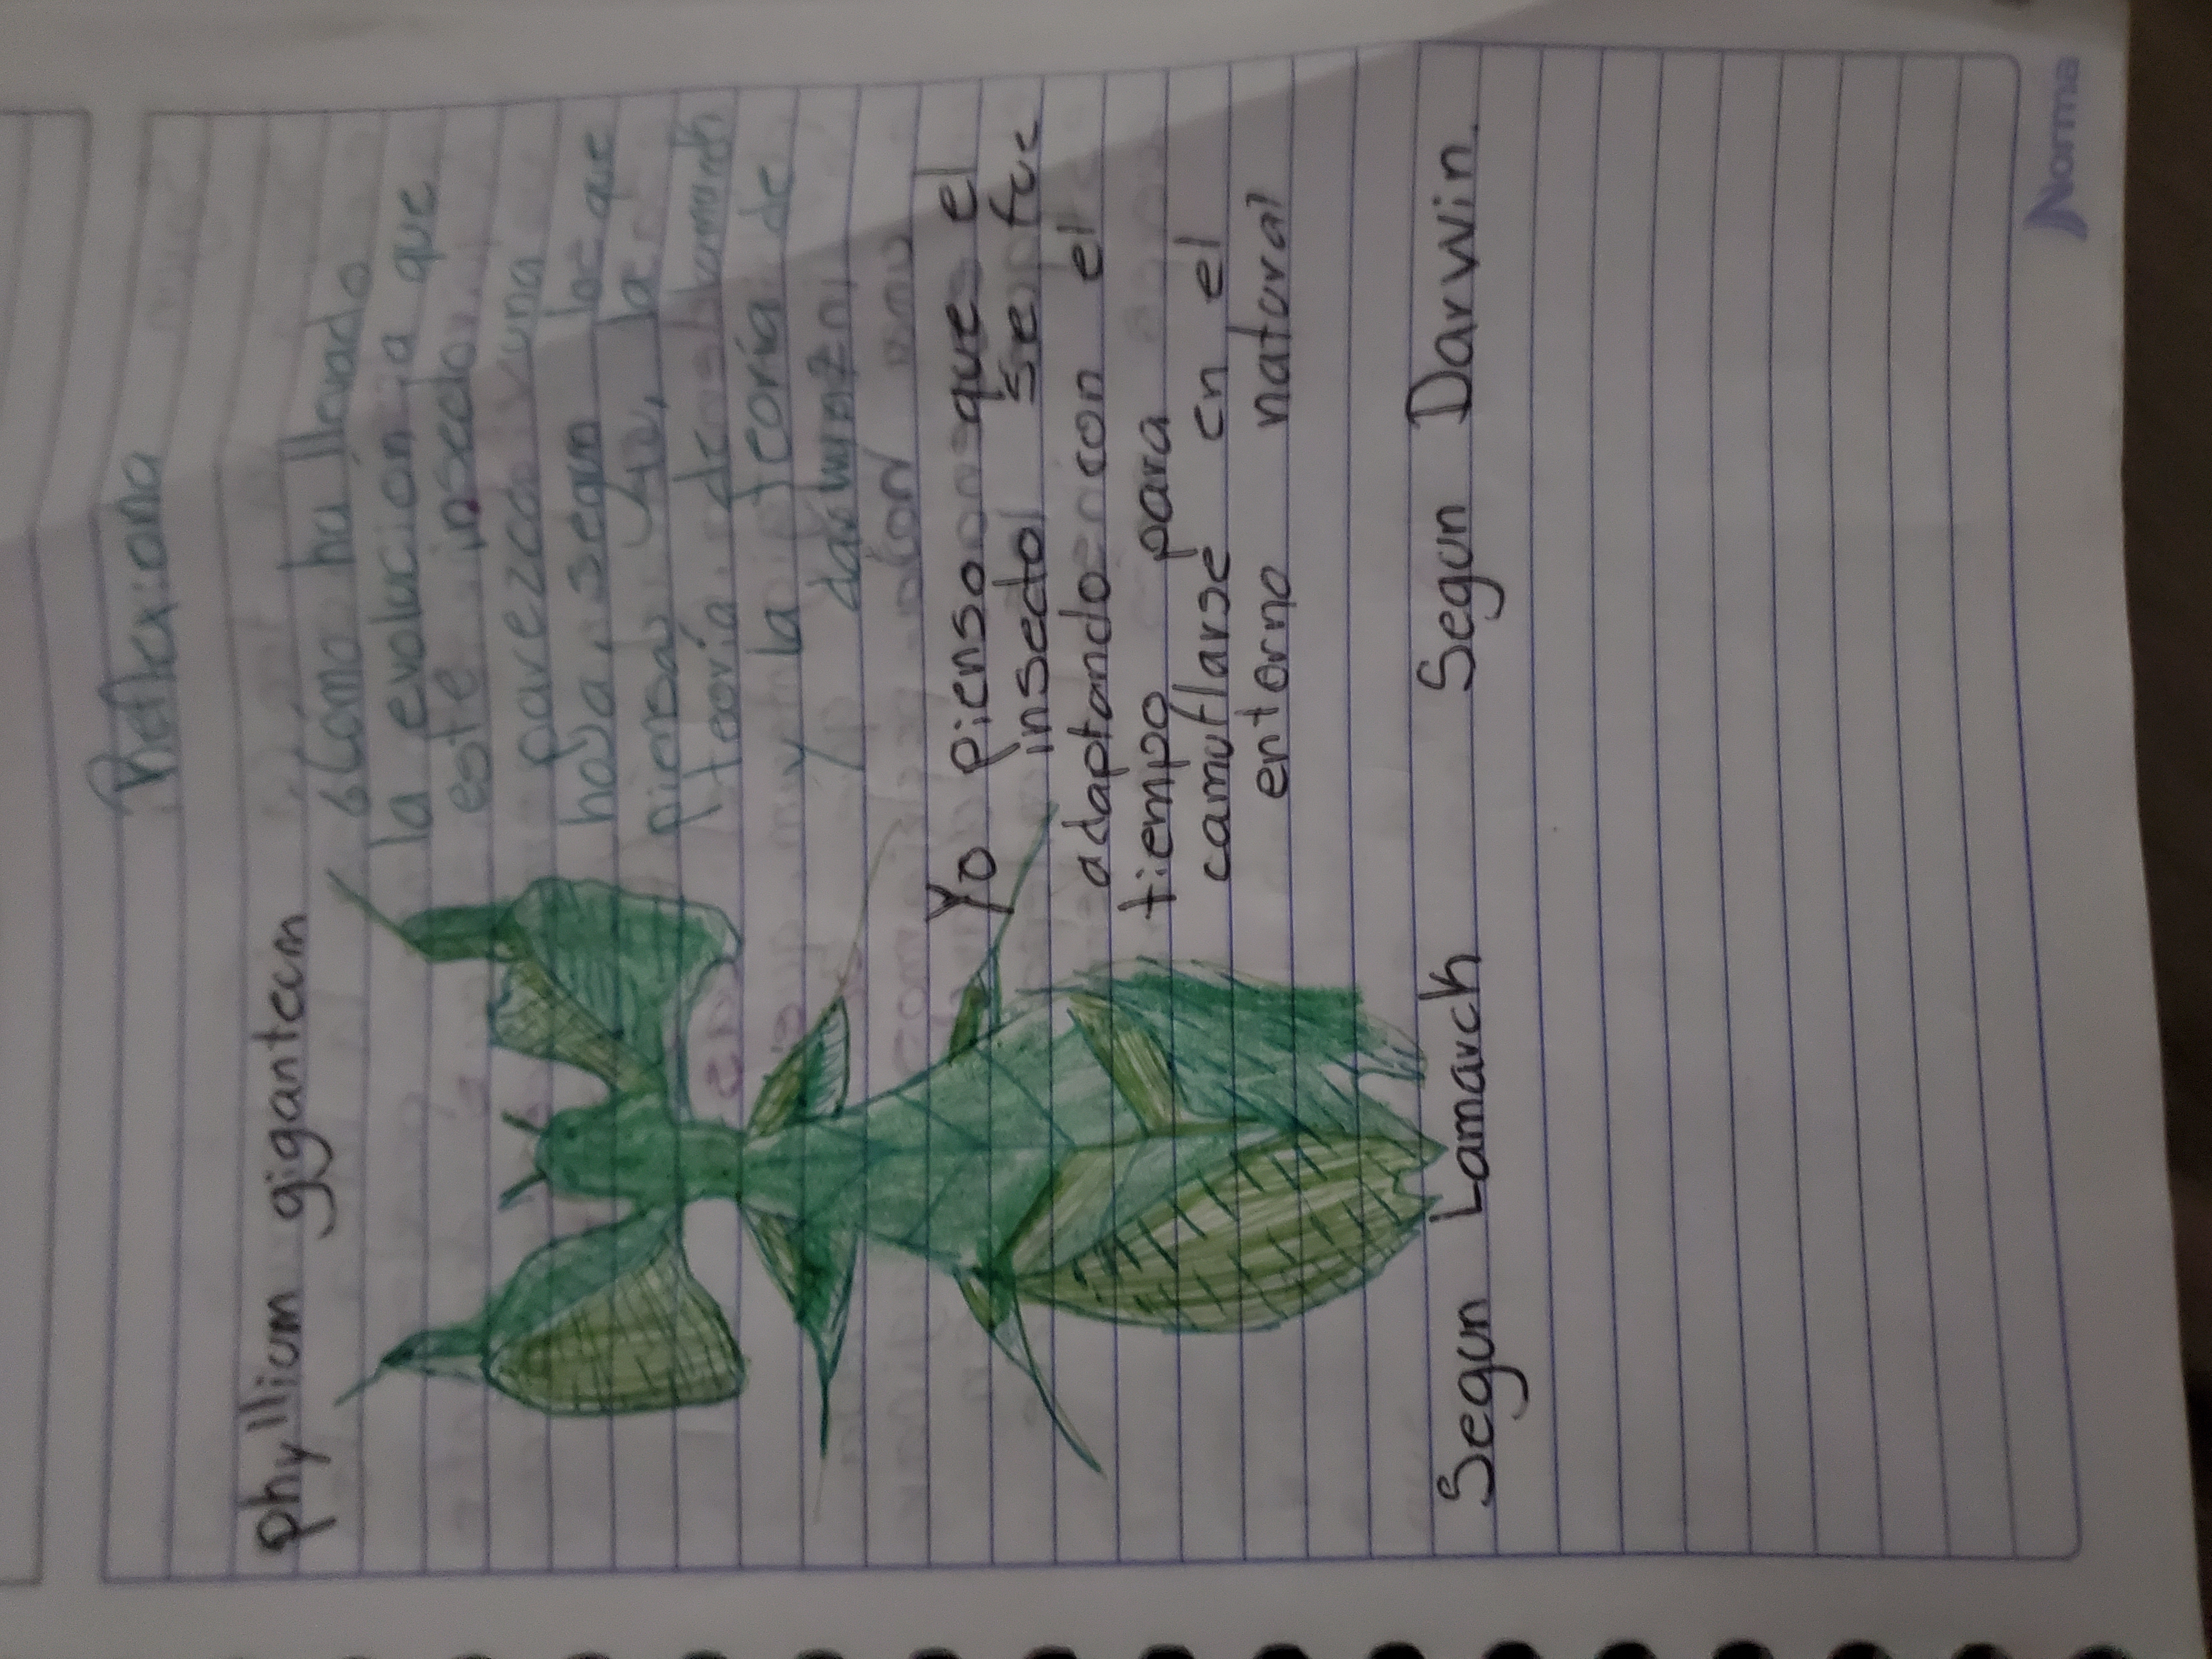 Reflexiona
phyllium giganteum
¿Como ha llevado
la evolucion a que
este insecto
parezca una
hoja, segun lo que
piensas tu, la
teoría de lamarch
y la teoría de
darwin?
Yo pienso que el
insecto se fue
adaptando con el
tiempo para
camuflarse en el
entorno natural
Segun Lamarck Segun Darwin.
Norma